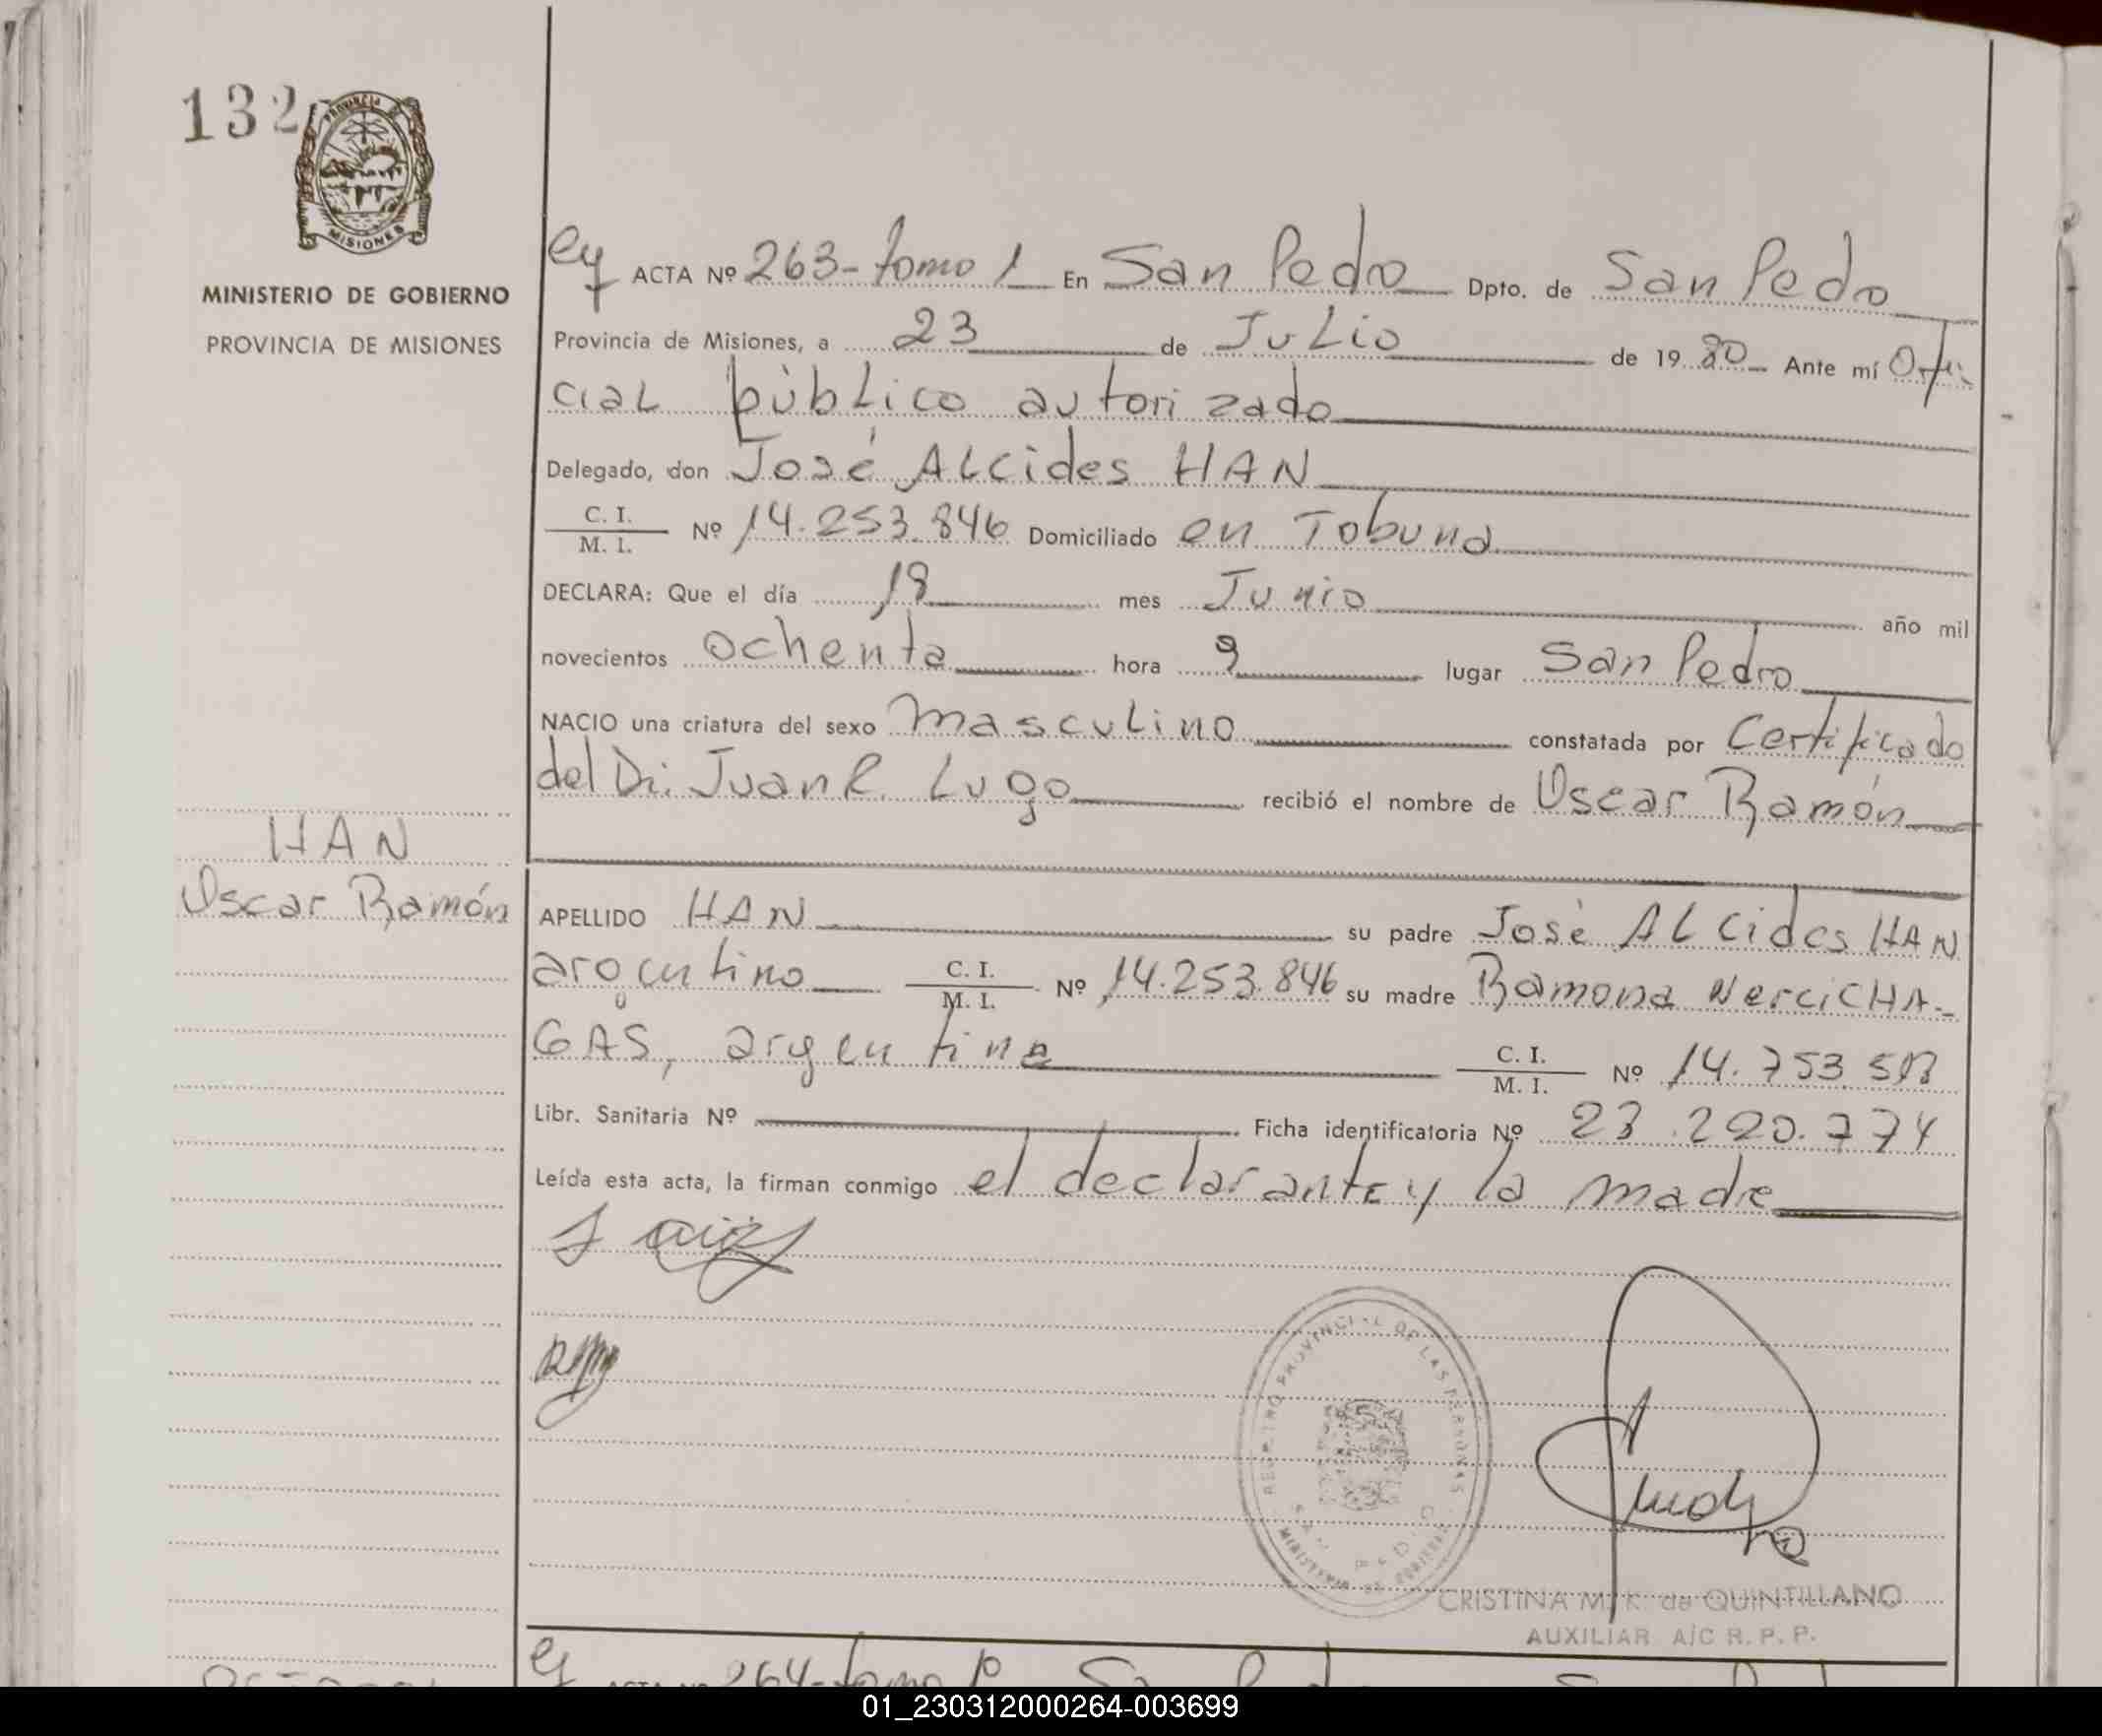 132
PROVINCIA DE
MISIONES
MINISTERIO DE GOBIERNO
PROVINCIA DE MISIONES
HAN
Oscar Ramón
ACTA Nº 263-tomo 1 En San Pedro Dpto. de San Pedro
Provincia de Misiones, a 23 de Julio de 19 80 Ante mí Ofi
cial público autorizado
Delegado, don José Alcides HAN
C. I.
M. I. Nº 14.253.846 Domiciliado en Tobuna
DECLARA: Que el día 18 mes Junio año mil
novecientos ochenta hora 9 lugar San Pedro
NACIO una criatura del sexo masculino constatada por Certificado
del Dr. Juan R. Lugo recibió el nombre de Oscar Ramón
APELLIDO HAN su padre José Alcides HAN
argentino C. I.
M. I. Nº 14.253.846 su madre Ramona Nerci CHA-
GAS, argentina C. I.
M. I. Nº 14.753
Libr. Sanitaria Nº Ficha identificatoria Nº 23.220.774
Leída esta acta, la firman conmigo el declarante y la madre
REGISTRO PROVINCIAL DE LAS PERSONAS
SAN PEDRO
MINISTERIO DE GOBIERNO
CRISTINA M. K. de QUINTILLANO
AUXILIAR A/C R. P. P.
ACTA Nº 264-tomo 1º
01_230312000264-003699